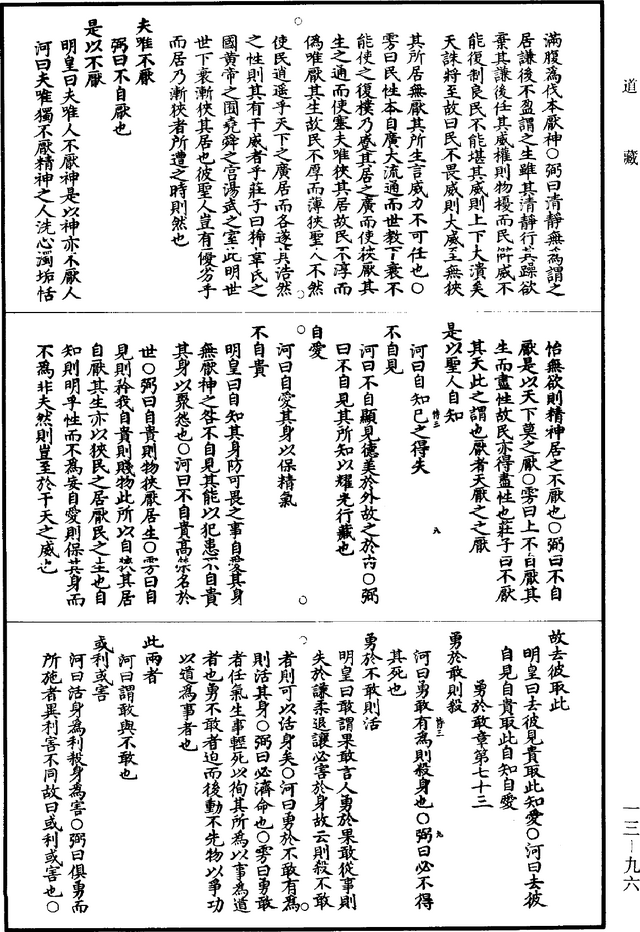 道藏
滿腹為伐本厭神○弼曰清靜無為謂之
居謙後不盈謂之生雖其清靜行其躁欲
棄其謙後任其威權則物擾而民僻威不
能復制良民不能堪其威則上下大潰矣
天誅將至故曰民不畏威則大威至無狹
其所居無厭其所生言威力不可任也○
雱曰民性本自廣大流通而世教下衰不
能使之復樸乃感其居之廣而使狹厭其
生之通而使塞夫唯狹其居故民不淳而
偽唯厭其生故民不厚而薄狹聖人不然
使民逍遙乎天下之廣居而各遂其浩然
之性則其有干威者乎莊子曰狶韋氏之
國黃帝之圃堯舜之宮湯武之室此明世
世下衰漸狹其居也彼聖人豈有優劣乎
而居乃漸狹者所遭之時則然也
夫唯不厭
弼曰不自厭也
是以不厭
明皇曰夫唯人不厭神是以神亦不厭人
河曰夫唯獨不厭精神之人洗心濁垢恬
怡無欲則精神居之不厭也○弼曰不自
厭是以天下莫之厭○雱曰上不自厭其
生而盡性故民亦得盡性也莊子曰不厭
其天此之謂也厭者天厭之之厭
是以聖人自知
河曰自知己之得失
不自見
河曰不自顯見德美於外故之於內○弼
曰不自見其所知以耀光行藏也
自愛
河曰自愛其身以保精氣
不自貴
明皇曰自知其身防可畏之事自愛其身
無厭神之咎不自見其能以犯患不自貴
其身以聚怨也○河曰不自貴高榮名於
世○弼曰自貴則物狹厭居生○雱曰自
見則矜我自貴則賤物此所以自狹其居
自厭其生亦以狹民之居厭民之生也自
知則明乎性而不為妄自愛則保其身而
不為非夫然則豈至於干天之威也
故去彼取此
明皇曰去彼見貴取此知愛○河曰去彼
自見自貴取此自知自愛
勇於敢章第七十三
勇於敢則殺
河曰勇敢有為則殺身也○弼曰必不得
其死也
勇於不敢則活
明皇曰敢謂果敢言人勇於果敢從事則
失於謙柔退讓必害於身故云則殺不敢
者則可以活身矣○河曰勇於不敢有為
則活其身○弼曰必濟命也○雱曰勇敢
者任氣生事輕死以徇其所為以事為道
者也勇不敢者迫而後動不先物以爭功
以道為事者也
此兩者
河曰謂敢與不敢也
或利或害
河曰活身為利殺身為害○弼曰俱勇而
所施者異利害不同故曰或利或害也○
一三—九六